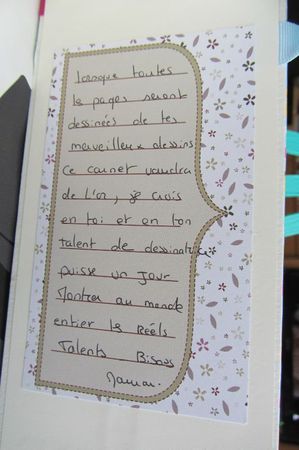 lorsque toutes
les pages seront
dessinées de tes
merveilleux dessins
Ce carnet vaudra
de l'or, je crois
en toi et en ton
talent de dessinatrice
puisse un jour
Montrer au monde
entier les Réels
Talents. Bisous
Maman.